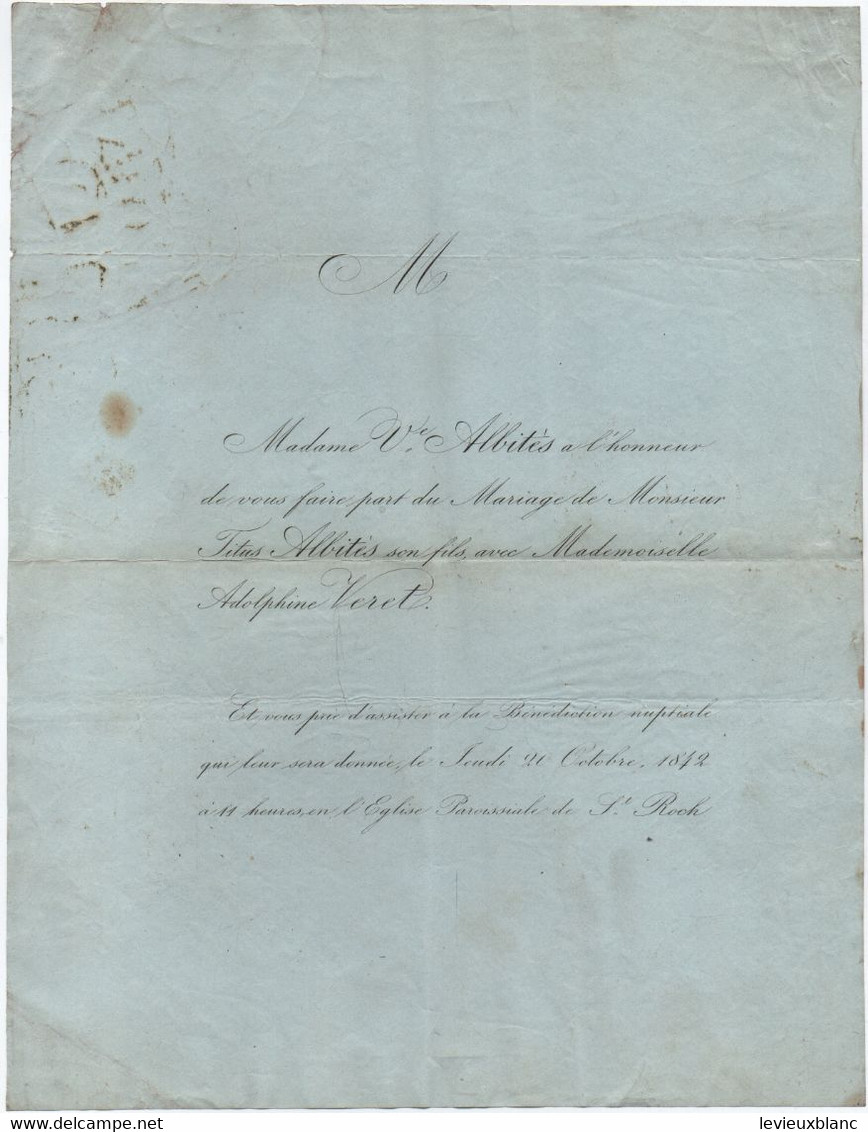 M
Madame V.e Albitès a l'honneur
de vous faire part du Mariage de Monsieur
Titus Albitès son fils, avec Mademoiselle
Adolphine Veret.
Et vous prie d'assister à la Bénédiction nuptiale
qui leur sera donnée, le Jeudi 20 Octobre, 1842
à 11 heures, en l'Eglise Paroissiale de S.t Roch
www.delcampe.net
levieuxblanc